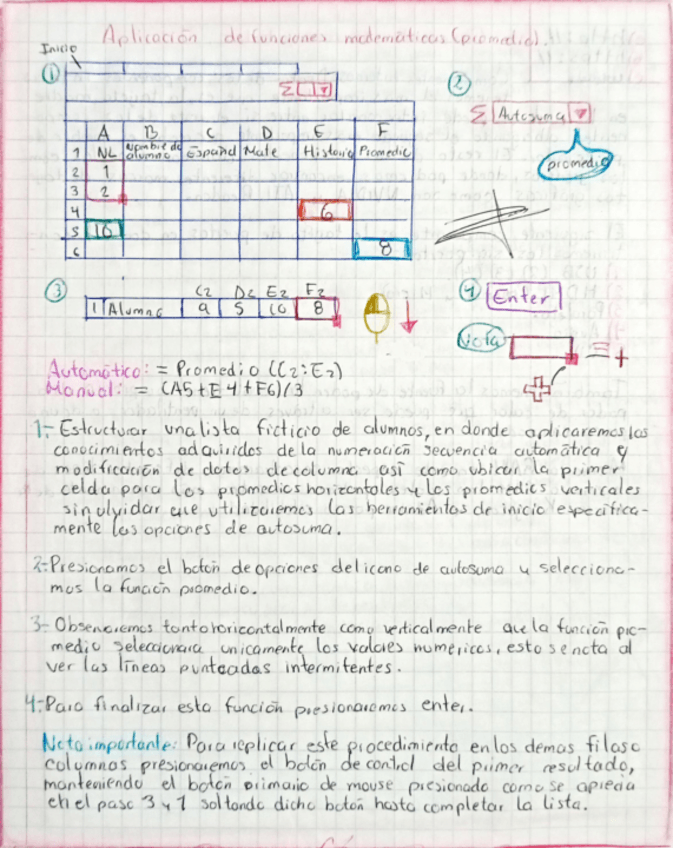 Aplicación de funciones matemáticas (promedio).
Inicio
1
Σ
A B C D E F
1 NL Nombre de alumno Español Mate Historia Promedio
2 1
3 2
4 6
5 10
6 8
2
Σ Autosuma
promedio
3
C2 D2 E2 F2
1 Alumno 9 5 10 8
4 Enter
Nota = +
Automático: = Promedio (C2:E2)
Manual: = (A5+E4+F6)/3
1.- Estructurar una lista ficticio de alumnos, en donde aplicaremos los
conocimientos adquiridos de la numeración secuencia automática y
modificación de datos de columna así como ubicar la primer
celda para los promedios horizontales y los promedios verticales
sin olvidar que utilizaremos las herramientas de inicio específica-
mente las opciones de autosuma.
2.- Presionamos el botón de opciones del icono de autosuma y selecciona-
mos la función promedio.
3.- Observaremos tanto horizontalmente como verticalmente que la función pro-
medio seleccionara unicamente los valores numéricos, esto se nota al
ver las líneas punteadas intermitentes.
4.- Para finalizar esta función presionaremos enter.
Nota importante: Para replicar este procedimiento en los demas filas o
columnas presionaremos el botón de control del primer resultado,
manteniendo el botón primario de mouse presionado como se aprecia
en el paso 3 y 1 soltando dicho botón hasta completar la lista.